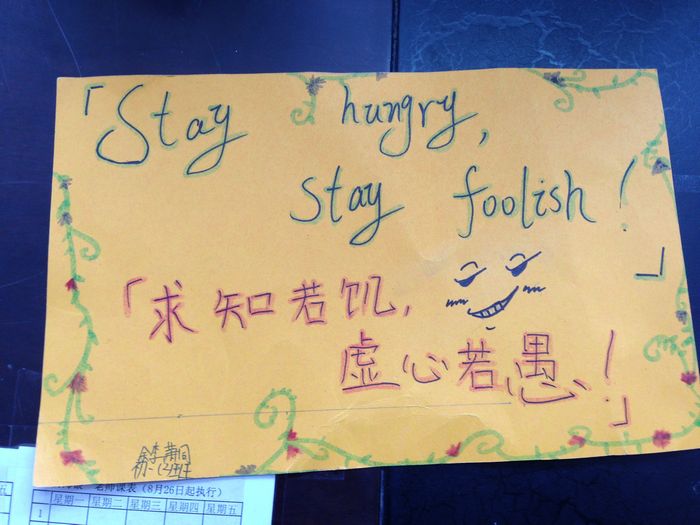 「Stay hungry,
stay foolish!」
「求知若饥,
虚心若愚!」
老师课表(8月26日起执行)
星期一 星期二 星期三 星期四 星期五
1